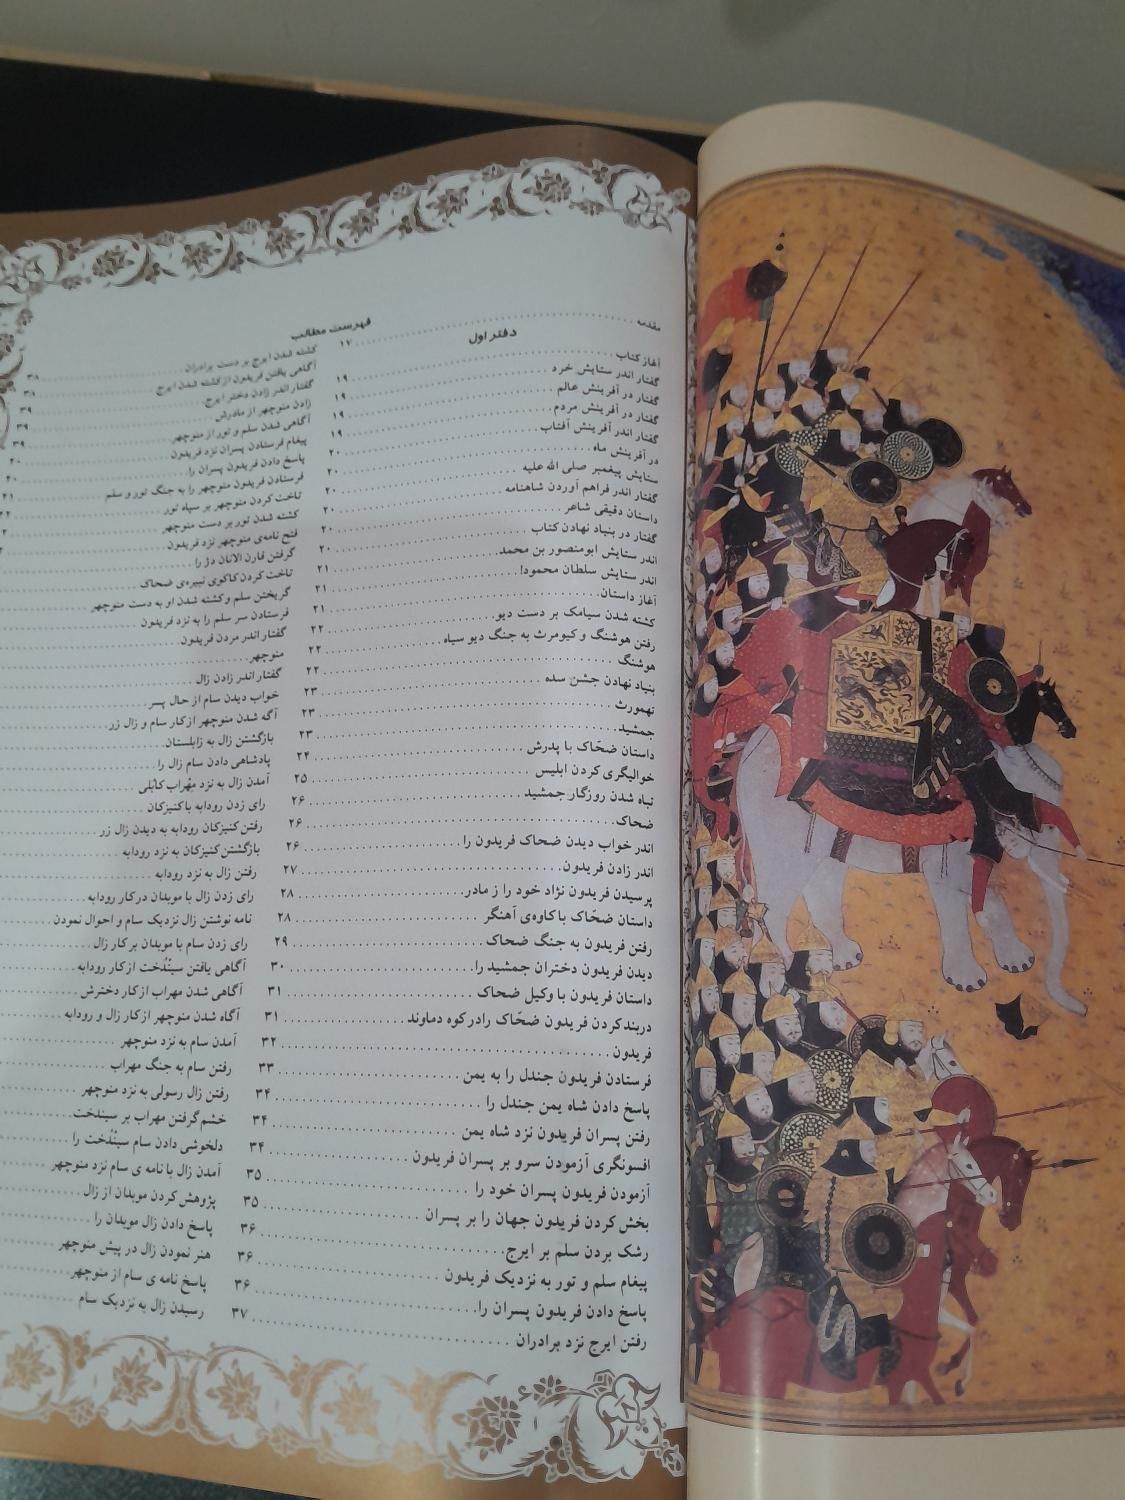 فهرست مطالب
مقدمه ۱۷
دفتر اول
آغاز کتاب ۱۹
گفتار اندر ستایش خرد ۱۹
گفتار در آفرینش عالم ۱۹
گفتار در آفرینش مردم ۱۹
گفتار اندر آفرینش آفتاب ۲۰
در آفرینش ماه ۲۰
ستایش پیغمبر صلی الله علیه ۲۰
گفتار اندر فراهم آوردن شاهنامه ۲۰
داستان دقیقی شاعر ۲۰
گفتار در بنیاد نهادن کتاب ۲۰
اندر ستایش ابومنصور بن محمد ۲۱
اندر ستایش سلطان محمود ۲۱
آغاز داستان ۲۱
کشته شدن سیامک بر دست دیو ۲۲
رفتن هوشنگ و کیومرث به جنگ دیو سیاه ۲۲
هوشنگ ۲۲
بنیاد نهادن جشن سده ۲۳
تهمورث ۲۳
جمشید ۲۳
داستان ضحّاک با پدرش ۲۴
خوالیگری کردن ابلیس ۲۵
تباه شدن روزگار جمشید ۲۶
ضحاک ۲۶
اندر خواب دیدن ضحاک فریدون را ۲۶
اندر زادن فریدون ۲۷
پرسیدن فریدون نژاد خود را ز مادر ۲۸
داستان ضحّاک با کاوه‌ی آهنگر ۲۸
رفتن فریدون به جنگ ضحاک ۲۹
دیدن فریدون دختران جمشید را ۳۰
داستان فریدون با وکیل ضحاک ۳۱
دربند کردن فریدون ضحّاک را در کوه دماوند ۳۱
فریدون ۳۲
فرستادن فریدون جندل را به یمن ۳۳
پاسخ دادن شاه یمن جندل را ۳۴
رفتن پسران فریدون نزد شاه یمن ۳۴
افسونگری آزمودن سرو بر پسران فریدون ۳۴
آزمودن فریدون پسران خود را ۳۵
بخش کردن فریدون جهان را بر پسران ۳۵
رشک بردن سلم بر ایرج ۳۶
پیغام سلم و تور به نزدیک فریدون ۳۶
پاسخ دادن فریدون پسران را ۳۶
رفتن ایرج نزد برادران ۳۷
کشته شدن ایرج بر دست برادران ۳۸
آگاهی یافتن فریدون از کشته شدن ایرج ۳۸
گفتار اندر زادن دختر ایرج ۳۹
زادن منوچهر از مادرش ۳۹
آگاهی شدن سلم و تور از منوچهر ۳۹
پیغام فرستادن پسران نزد فریدون ۴۰
پاسخ دادن فریدون پسران را ۴۰
فرستادن فریدون منوچهر را به جنگ تور و سلم ۴۱
تاخت کردن منوچهر بر سپاه تور
کشته شدن تور بر دست منوچهر
فتح نامه‌ی منوچهر نزد فریدون
گرفتن قارن الانان دژ را
تاخت کردن کاکوی نبیره‌ی ضحاک
گریختن سلم و کشته شدن او به دست منوچهر
فرستادن سر سلم را به نزد فریدون
گفتار اندر مردن فریدون
منوچهر
گفتار اندر زادن زال
خواب دیدن سام از حال پسر
آگه شدن منوچهر از کار سام و زال زر
بازگشتن زال به زابلستان
پادشاهی دادن سام زال را
آمدن زال به نزد مهراب کابلی
رای زدن رودابه با کنیزکان
رفتن کنیزکان رودابه به دیدن زال زر
بازگشتن کنیزکان به نزد رودابه
رفتن زال به نزد رودابه
رای زدن زال با موبدان در کار رودابه
نامه نوشتن زال نزدیک سام و احوال نمودن
رای زدن سام با موبدان بر کار زال
آگاهی یافتن سیندُخت از کار رودابه
آگاهی شدن مهراب از کار دخترش
آگاه شدن منوچهر از کار زال و رودابه
آمدن سام به نزد منوچهر
رفتن سام به جنگ مهراب
رفتن زال رسولی به نزد منوچهر
خشم گرفتن مهراب بر سیندخت
دلخوشی دادن سام سیندُخت را
آمدن زال با نامه ی سام نزد منوچهر
پژوهش کردن موبدان از زال
پاسخ دادن زال موبدان را
هنر نمودن زال در پیش منوچهر
پاسخ نامه ی سام از منوچهر
رسیدن زال به نزدیک سام